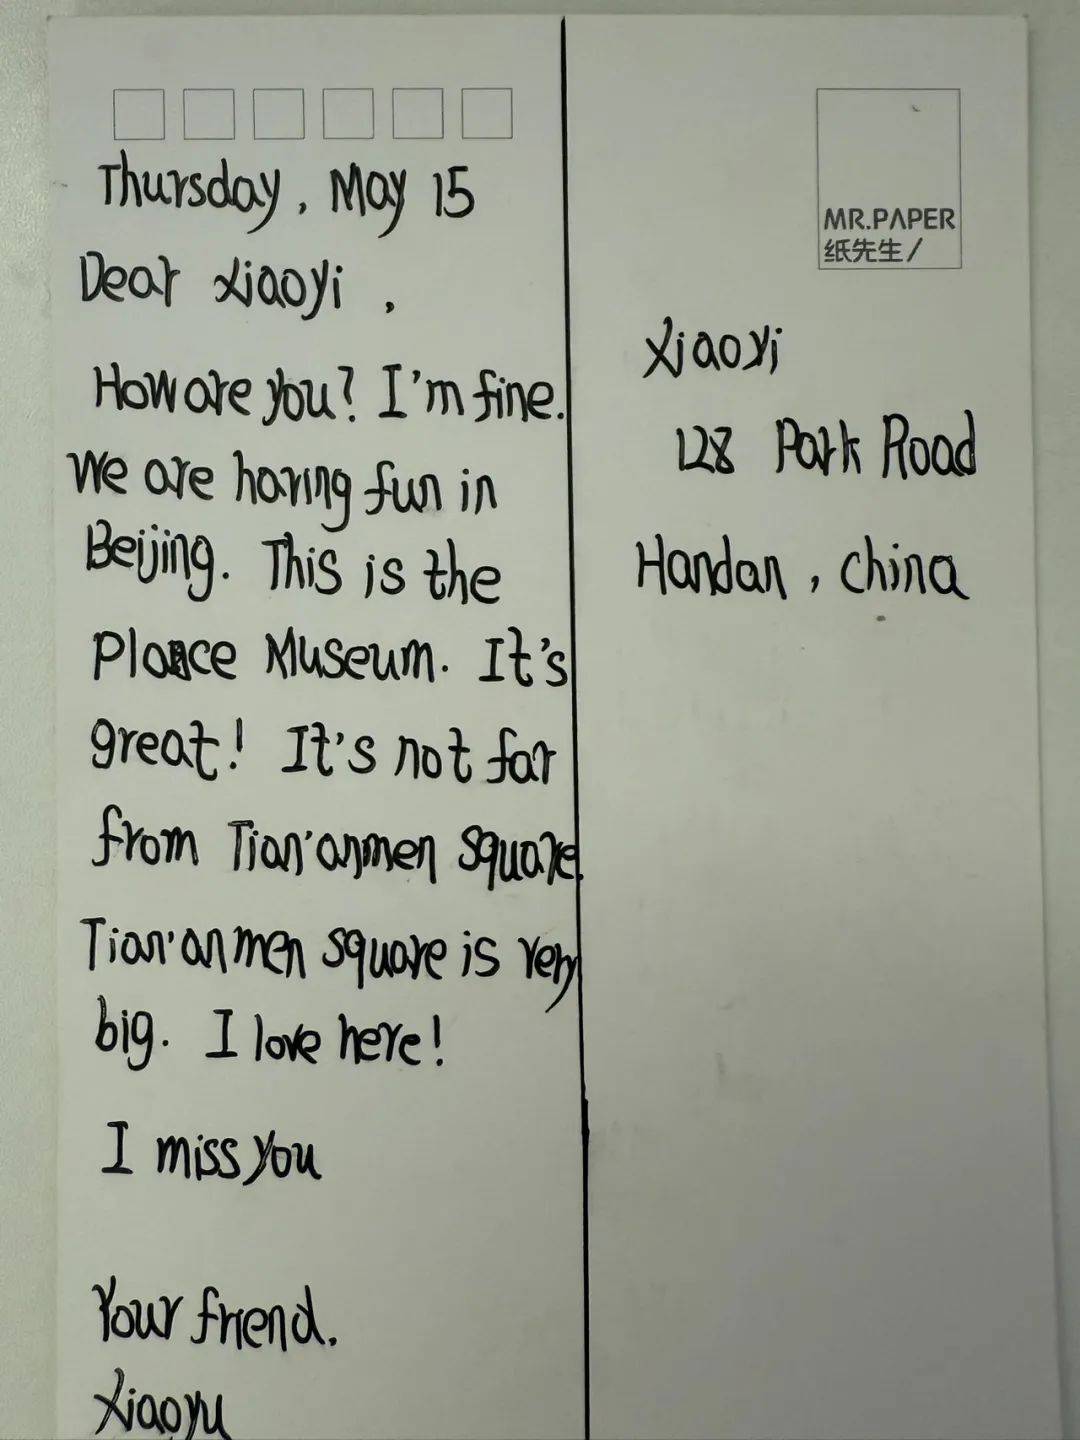 Thursday, May 15
Dear Xiaoyi,
How are you? I'm fine.
We are having fun in
Beijing. This is the
Place Museum. It's
great! It's not far
from Tian'anmen square.
Tian'anmen square is very
big. I love here!
I miss you
Your friend.
Xiaoyu
MR.PAPER
纸先生/
Xiaoyi
128 Park Road
Handan, china